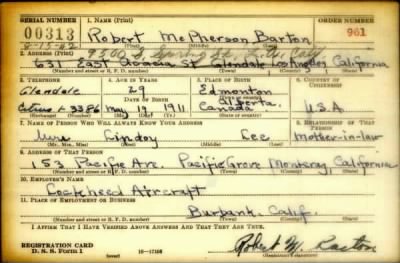 SERIAL NUMBER 1. NAME (Print) ORDER NUMBER
00313 Robert McPherson Barton 961
8-15-42 (First) (Middle) (Last)
2. ADDRESS (Print) 9500 S. Spring St. L.A. Calif
631 East Acacia St Glendale Los Angeles California
(Number and street or R. F. D. number) (Town) (County) (State)
3. TELEPHONE 4. AGE IN YEARS 5. PLACE OF BIRTH 6. COUNTRY OF CITIZENSHIP
Glendale 29 Edmonton
DATE OF BIRTH Alberta,
Citrus 1-3386 May 19 1911 Canada U.S.A.
(Exchange) (Number) (Mo.) (Day) (Yr.) (State or country)
7. NAME OF PERSON WHO WILL ALWAYS KNOW YOUR ADDRESS 8. RELATIONSHIP OF THAT PERSON
Mrs Lee mother-in-law
(Mr., Mrs., Miss) (First) (Middle) (Last)
9. ADDRESS OF THAT PERSON
153 Pacific Ave. Pacific Grove Monterey, California
(Number and street or R. F. D. number) (Town) (County) (State)
10. EMPLOYER'S NAME
Lockheed Aircraft
11. PLACE OF EMPLOYMENT OR BUSINESS
Burbank, Calif.
(Number and street or R. F. D. number) (Town) (County) (State)
I AFFIRM THAT I HAVE VERIFIED ABOVE ANSWERS AND THAT THEY ARE TRUE.
REGISTRATION CARD
D. S. S. Form 1 Robert M. Barton